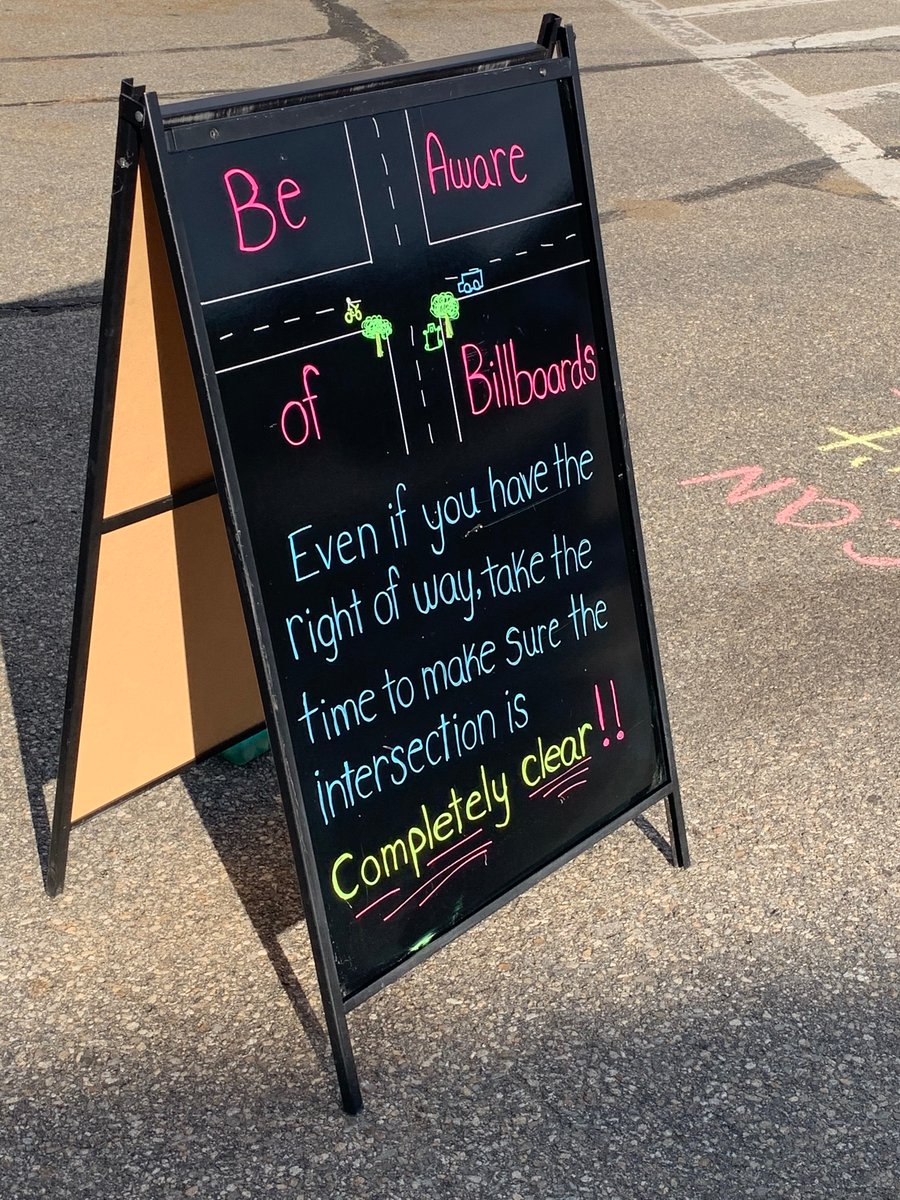 Be Aware
of Billboards
Even if you have the
right of way, take the
time to make sure the
intersection is
Completely clear!!